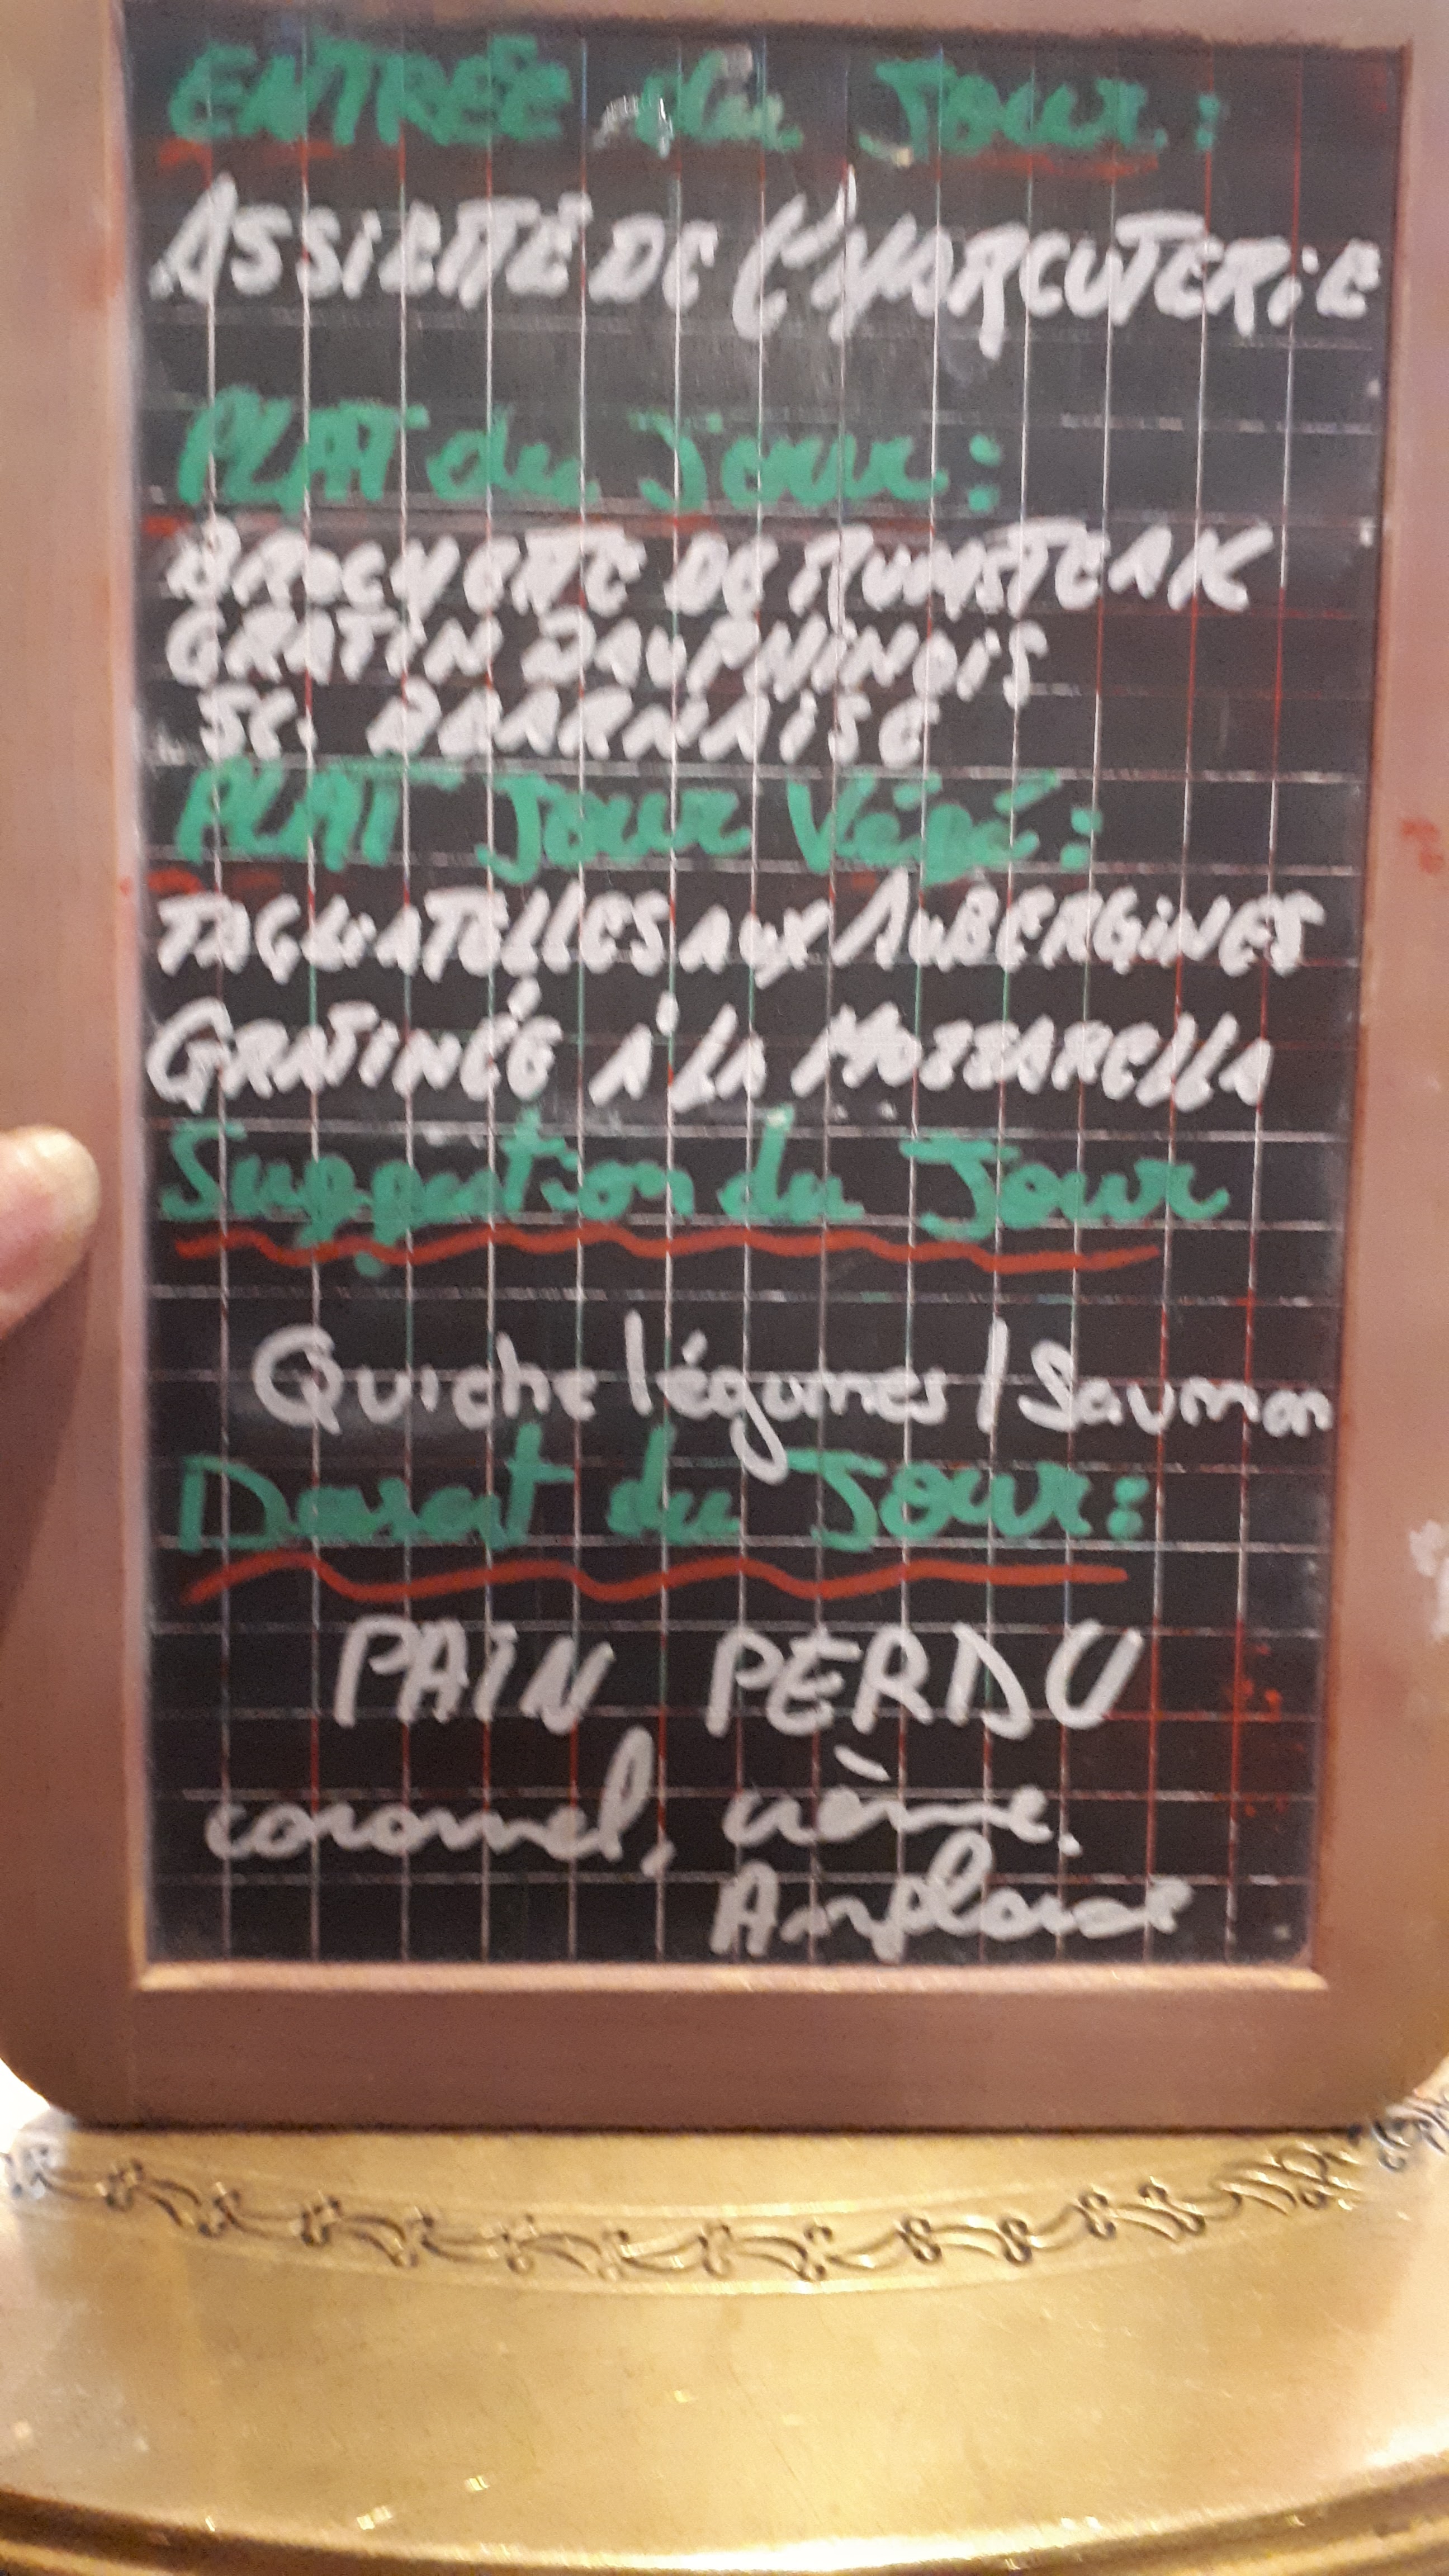 ENTRÉE du Jour:
ASSIETTE DE CHARCUTERIE
PLAT du Jour:
BROCHETTE DE RUMSTEAK
GRATIN DAUPHINOIS
SC. BEARNAISE
PLAT Jour Végé:
TAGLIATELLES AUX AUBERGINES
GRATINÉE À LA MOZZARELLA
Suggestion du Jour
Quiche légumes/Saumon
Dessert du Jour:
PAIN PERDU
caramel, crème.
Anglaise